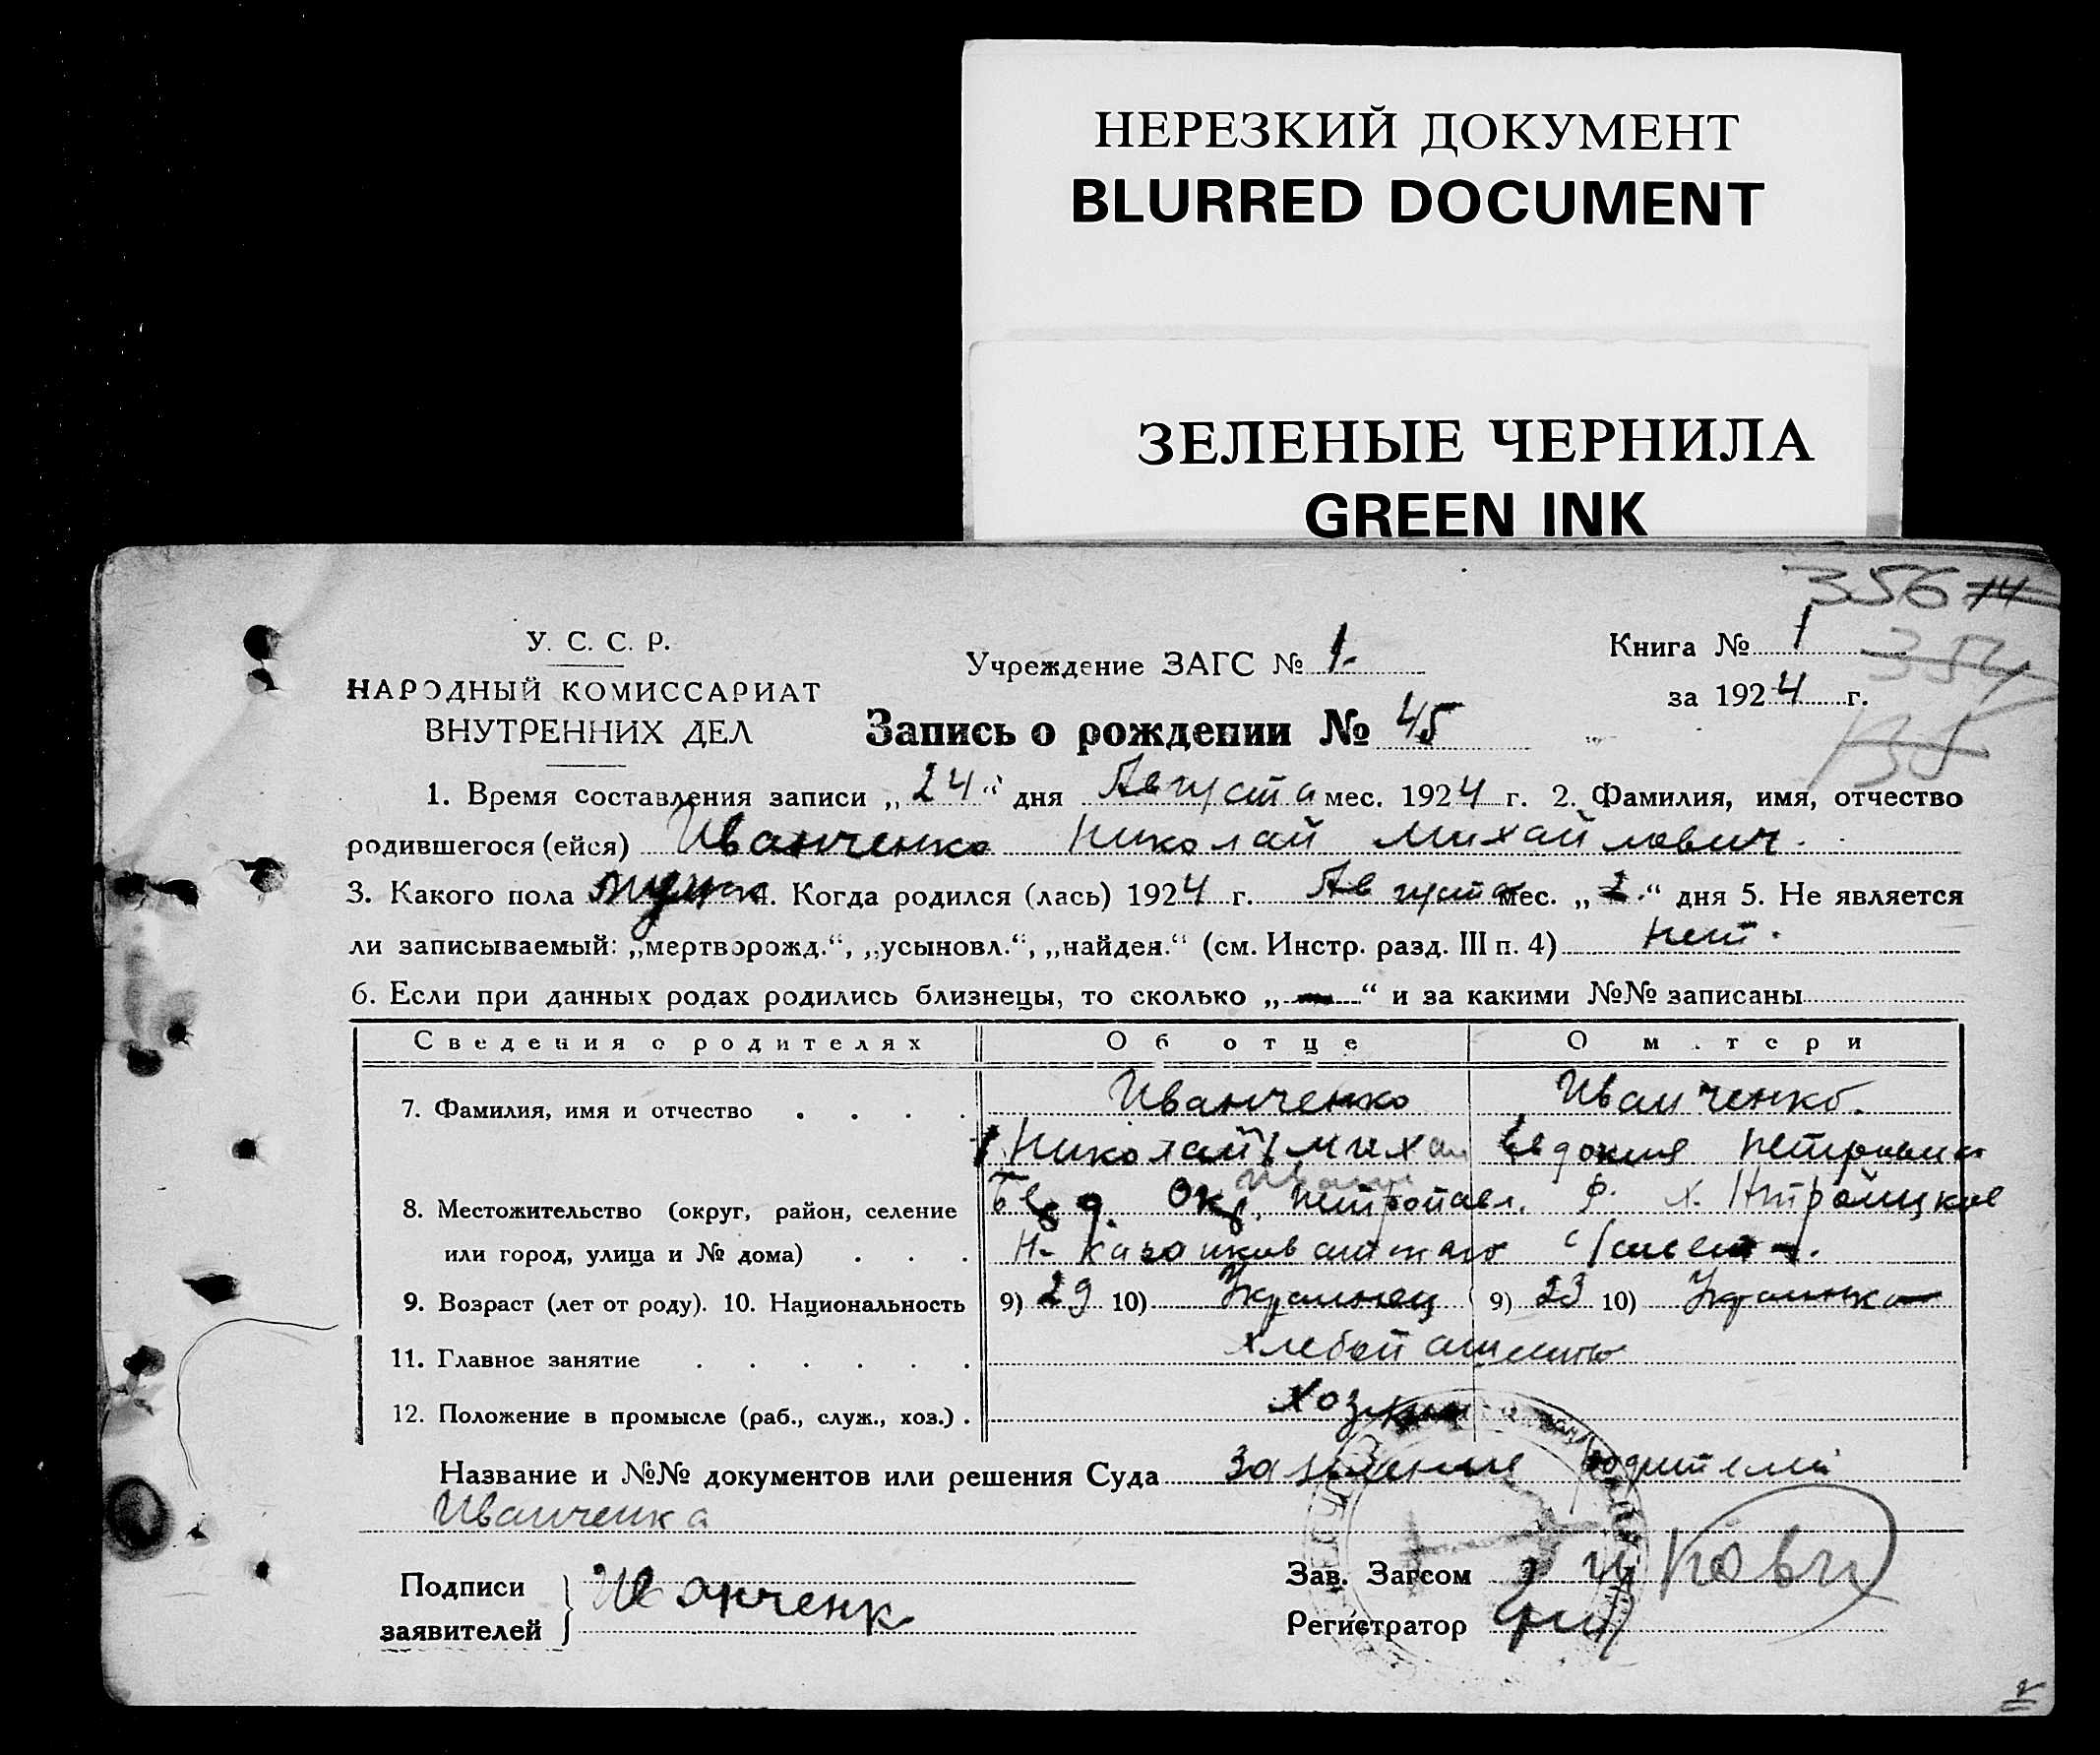 НЕРЕЗКИЙ ДОКУМЕНТ
BLURRED DOCUMENT
ЗЕЛЕНЫЕ ЧЕРНИЛА
GREEN INK
356 74
354
У. С. С. Р.
НАРОДНЫЙ КОМИССАРИАТ
ВНУТРЕННИХ ДЕЛ
Учреждение ЗАГС № 1
Книга № 1
за 1924 г.
Запись о рождении № 45
1. Время составления записи „24“ дня Августа мес. 1924 г. 2. Фамилия, имя, отчество
родившегося (ейся) Иванченко Николай Михайлович.
3. Какого пола муж 4. Когда родился (лась) 1924 г. Августа мес. „2.“ дня 5. Не является
ли записываемый: „мертворожд.“, „усыновл.“, „найден.“ (см. Инстр. разд. III п. 4) нет.
6. Если при данных родах родились близнецы, то сколько „—“ и за какими №№ записаны
Сведения о родителях Об отце О м.тери
7. Фамилия, имя и отчество Иванченко Иванченко.
Николай Михай Евдокия Петровна
8. Местожительство (округ, район, селение Окр. Петропавл. р. х.
или город, улица и № дома) Н-
9. Возраст (лет от роду). 10. Национальность 9) 29 10) Украинец 9) 23 10) Украинка
11. Главное занятие хлебопашество
12. Положение в промысле (раб., служ., хоз.) хозяин
Название и №№ документов или решения Суда Заявление родителей
Иванченка
Подписи
заявителей Иванченк
Зав. Загсом
Регистратор